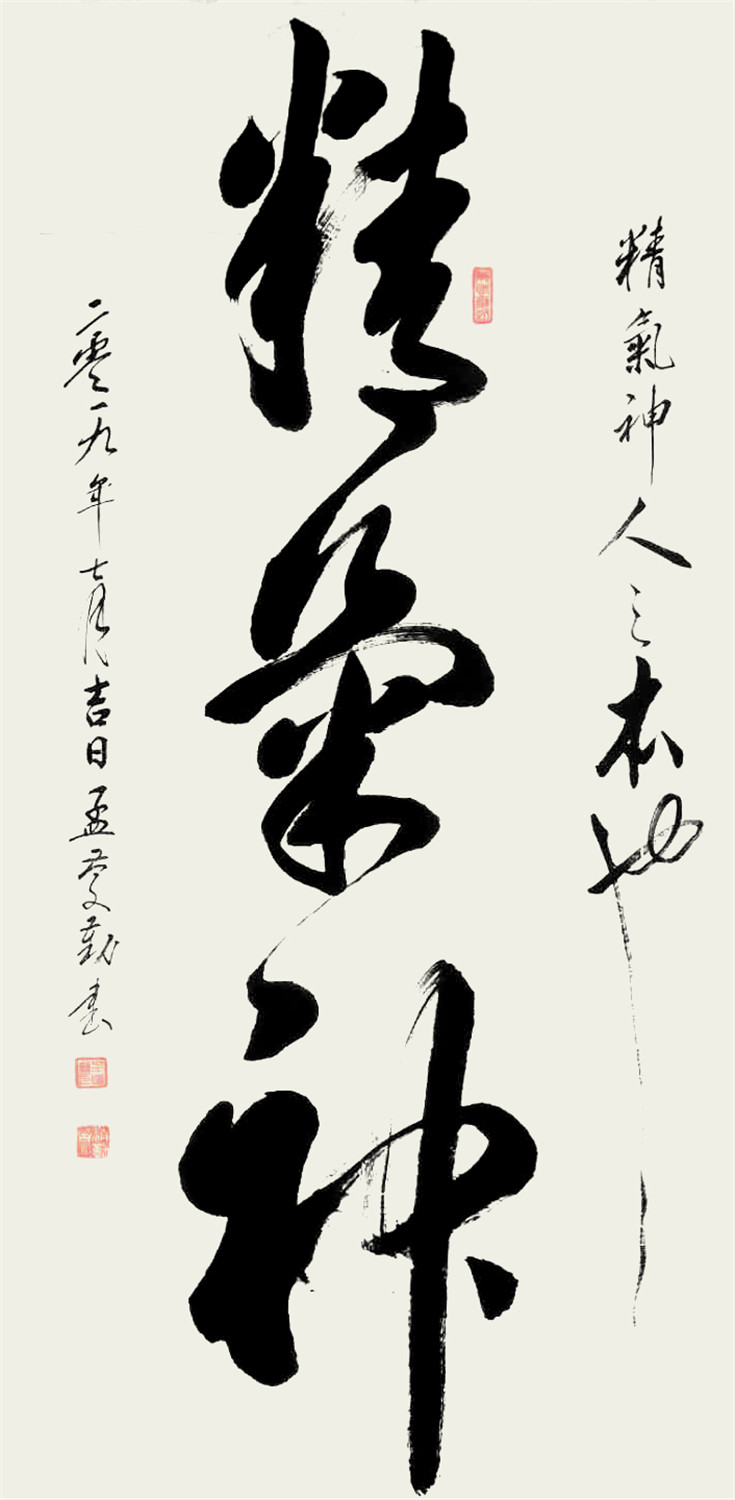 精氣神人之本也
精氣神
二零一九年 月 吉日孟慶 書